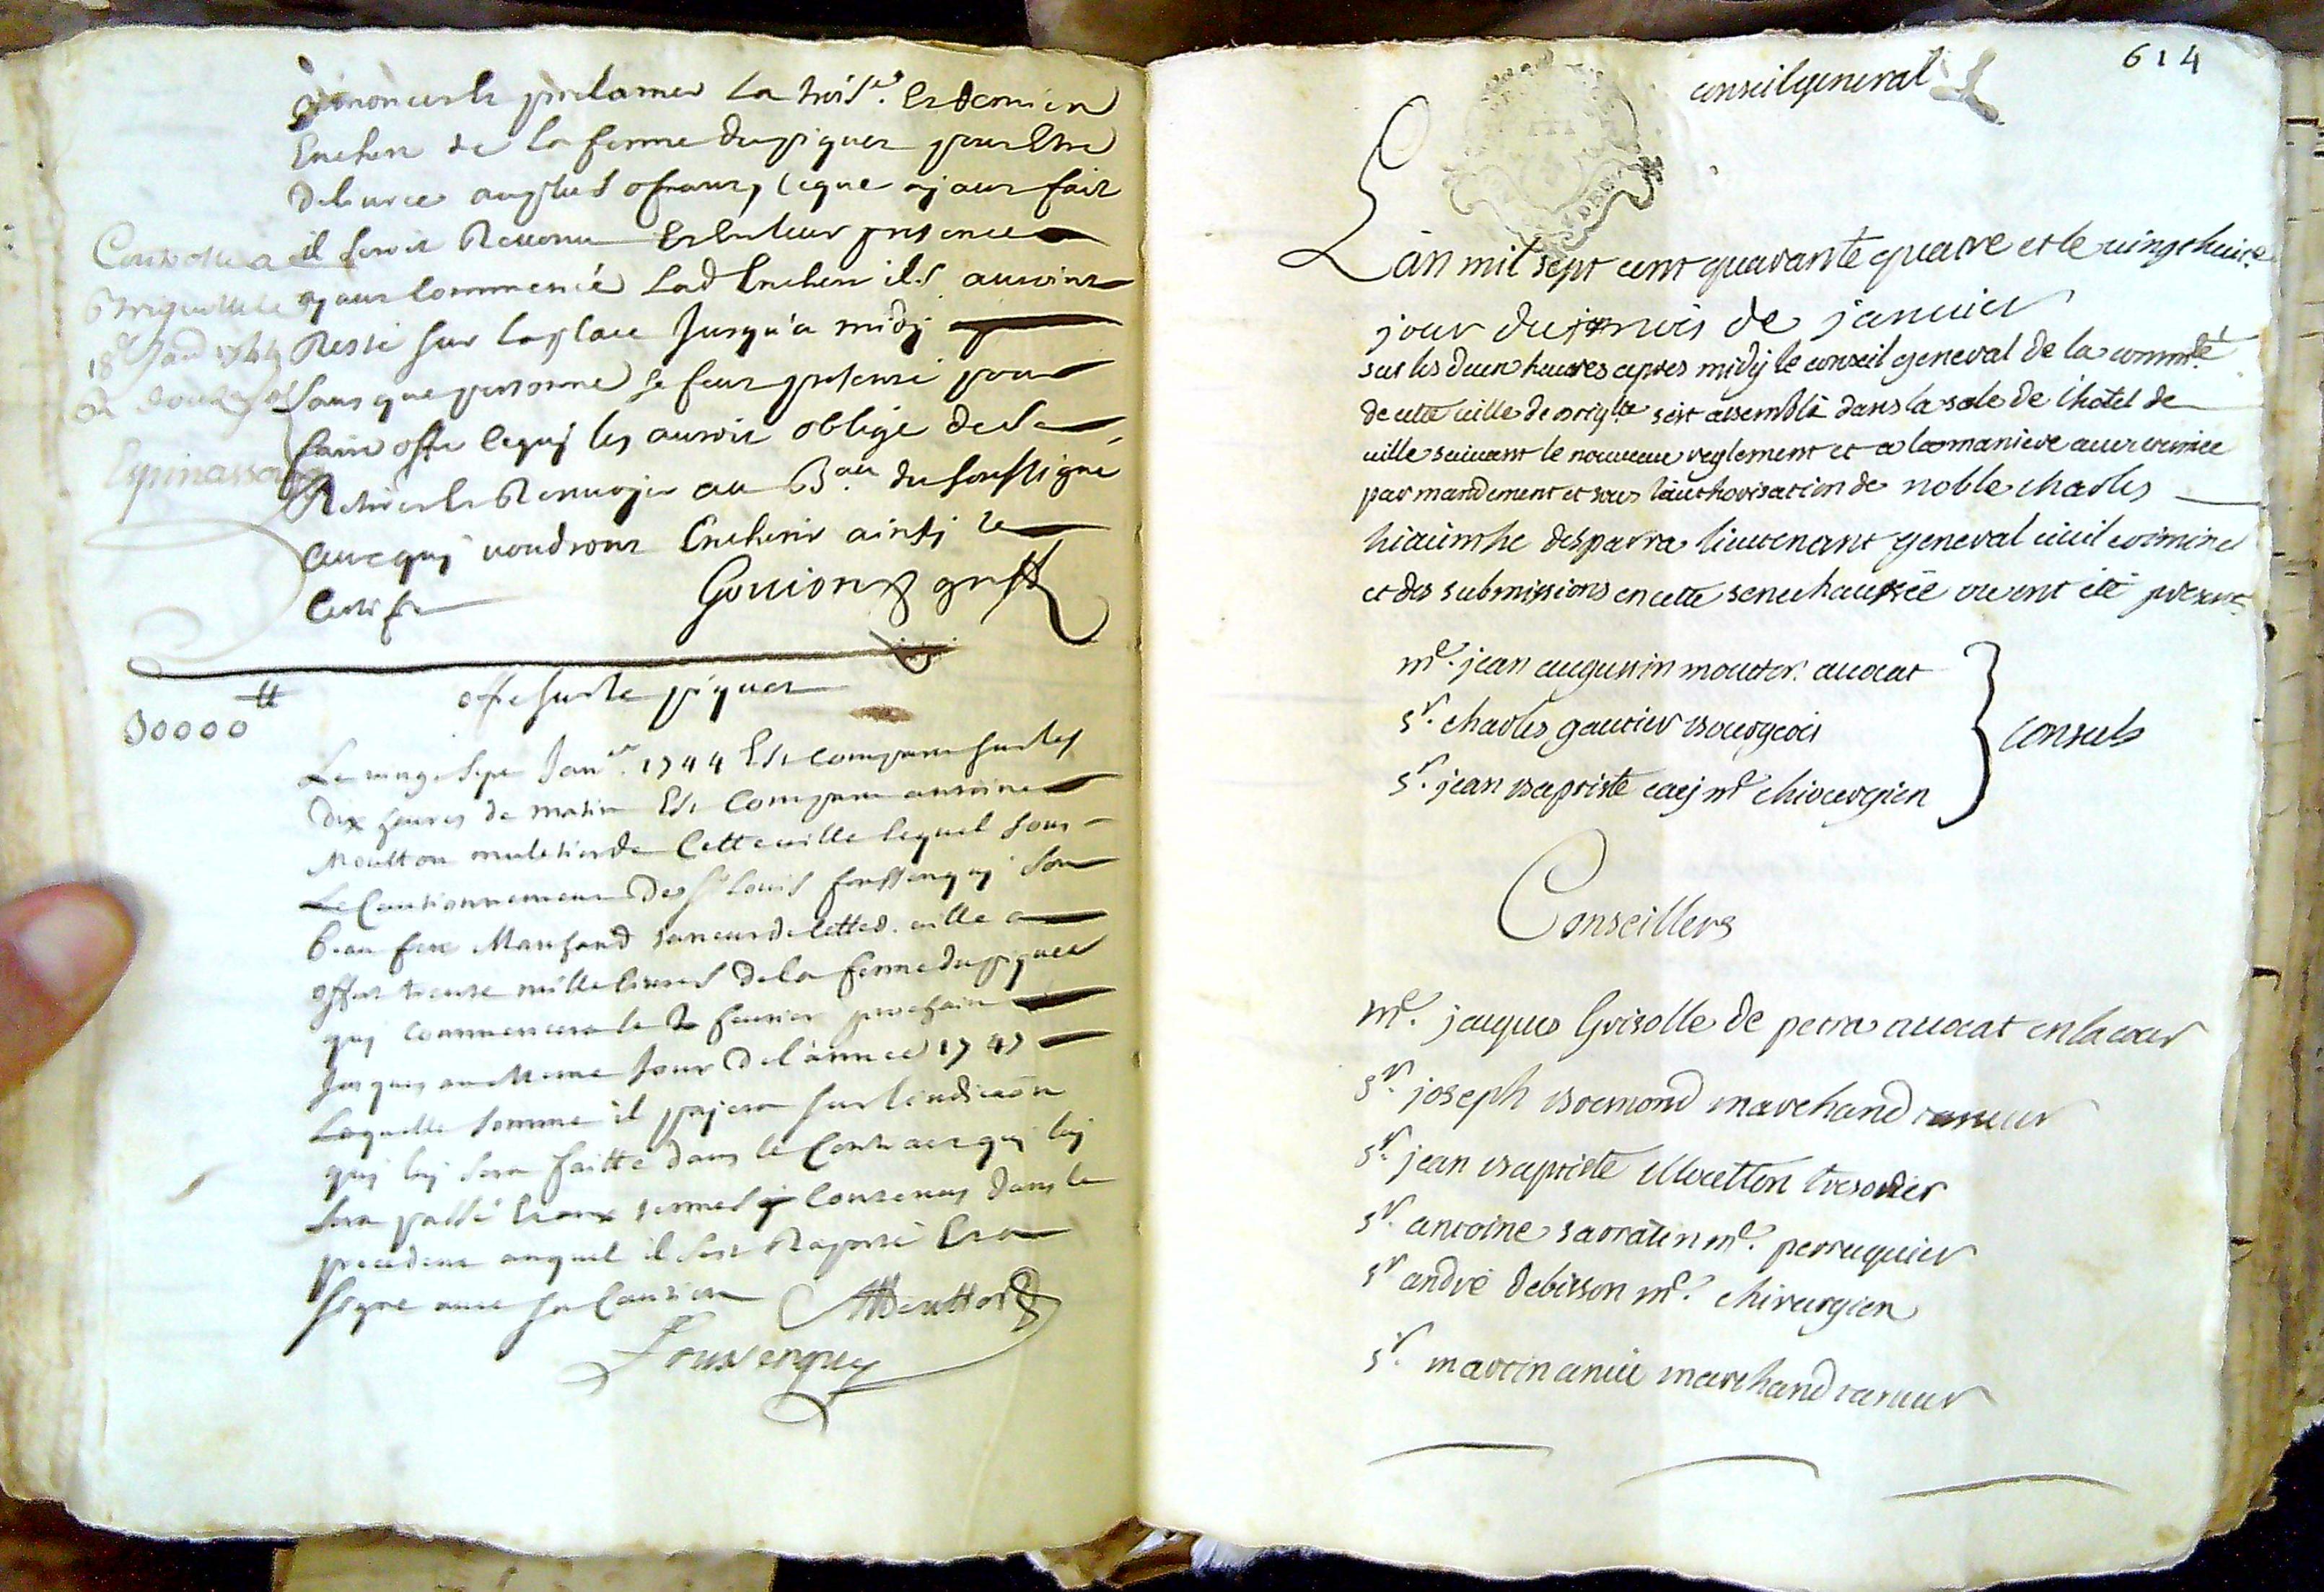 annoncer & proclamer la trois.e & dernier
Enchere de la ferme du piquet pour Etre
delivrée au plus ofrant, ce que ayant fait
il seroit Revenu Et en leur presence
ayant commencé Lad Enchere ils auroint
Resté sur la place Jusqu'a midy
sans que personne se feut presenté pour
faire offre ce quy les auroit obligé de se
Retirer & Renvoyer au B.au du soussigné
ceux quy voudront Encherir ainsy le
Certifie
Gouion greff
Controllé a
Brignolle le
18e Janv 1744
Espinassou
offre sur le piquet
30000 tt
Le vingt sept Janer. 1744 Est comparu sur les
dix heures de matin Est Comparu antoine
Moutton muletier de Cette ville lequel sous
Le Cautionnement de Sr Louis foussenquy son
beau frere Marchand taneur de cetted. ville a
offert trente mille livres de la ferme du piquet
quy commencera le 2 fevrier prochain
Jusques au Meme Jour de l'année 1747
Laquelle somme il payera sur l'indicaõn
quy luy sera faitte dans le Contract quy luy
sera passé & aux termes contenus dans le
precedent auquel il s'est Raporté & a
signé avec sa Caution
Moutton
Foussenquy
614
conseil general
L'an mil sept cent quarante quatre et le vingt huit.e
jour du mois de janvier
sur les deux heures apres midy le conseil general de la commté
de cette ville de briglle s'est assemblé dans la sale de l'hotel de
ville suivant le nouveau reglement et a la maniere accoutumée
par mandement et sous l'authorisation de noble charles
hiacinthe desparra lieutenant general civil criminel
et des submissions en cette senechaussée ou ont été present
me. jean augustin moutton avocat
sr. charles gautier bourgeois
sr. jean baptiste caij me chirurgien
consuls
Conseillers
me. jaques Grisolle de petra avocat en la cour
sr. joseph bremond marchand taneur
sr. jean baptiste Moutton tresorier
sr. antoine sarratin me. perruquier
sr andré debisson me. chirurgien
sr. martin amic marchand taneur